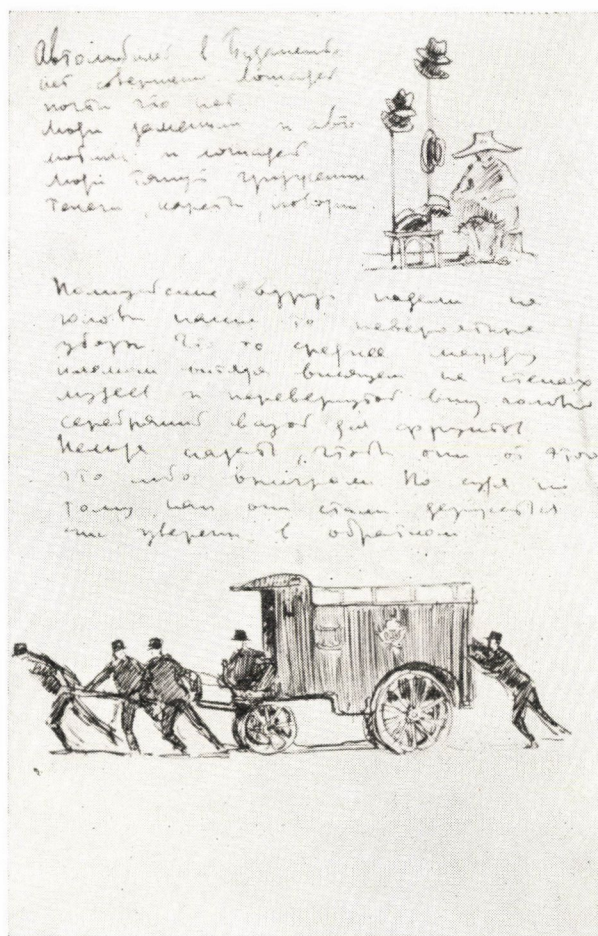 Автомобилей в Будапеште
нет совершенно. Лошадей
почти что нет.
Люди заменили и авто
мобили и лошадей
Люди тянут груженные
телеги, кареты, повозки.
Полицейские вдруг надели на
головы какие то невероятные
уборы. Что то среднее между
шлемом висящем на стенах
музеев и перевернутой вниз головой
серебряной вазой для фруктов
Нельзя сказать, чтобы они от этого
что либо выиграли. Но судя по
тому как они стали держаться
они уверены в обратном